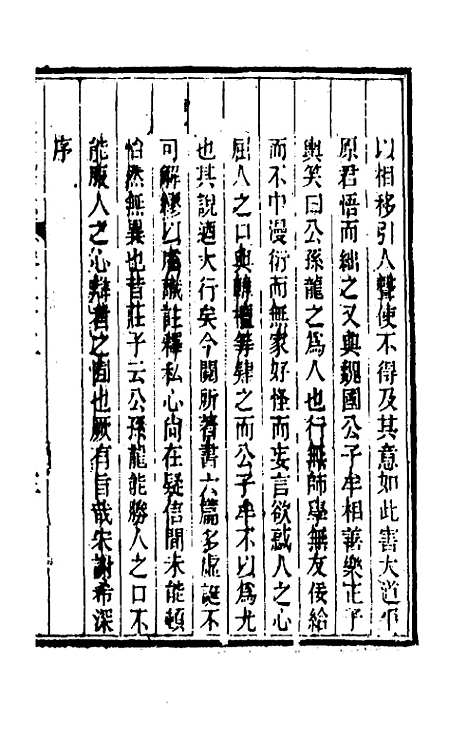 以相移引人聲使不得及其意如此害大道平
原君悟而絀之又與魏國公子牟相善樂正子
輿笑曰公孫龍之為人也行無師學無友佞給
而不中漫衍而無家好怪而妄言欲惑人之心
屈人之口與韓檀等肄之而公子牟不以為尤
也其說遒大行矣今閱所著書六篇多虛誕不
可解繆以膚識註釋私心尚在疑信間未能頓
怡然無異也昔莊子云公孫龍能勝人之口不
能服人之心辯者之囿也厥有旨哉宋謝希深
序